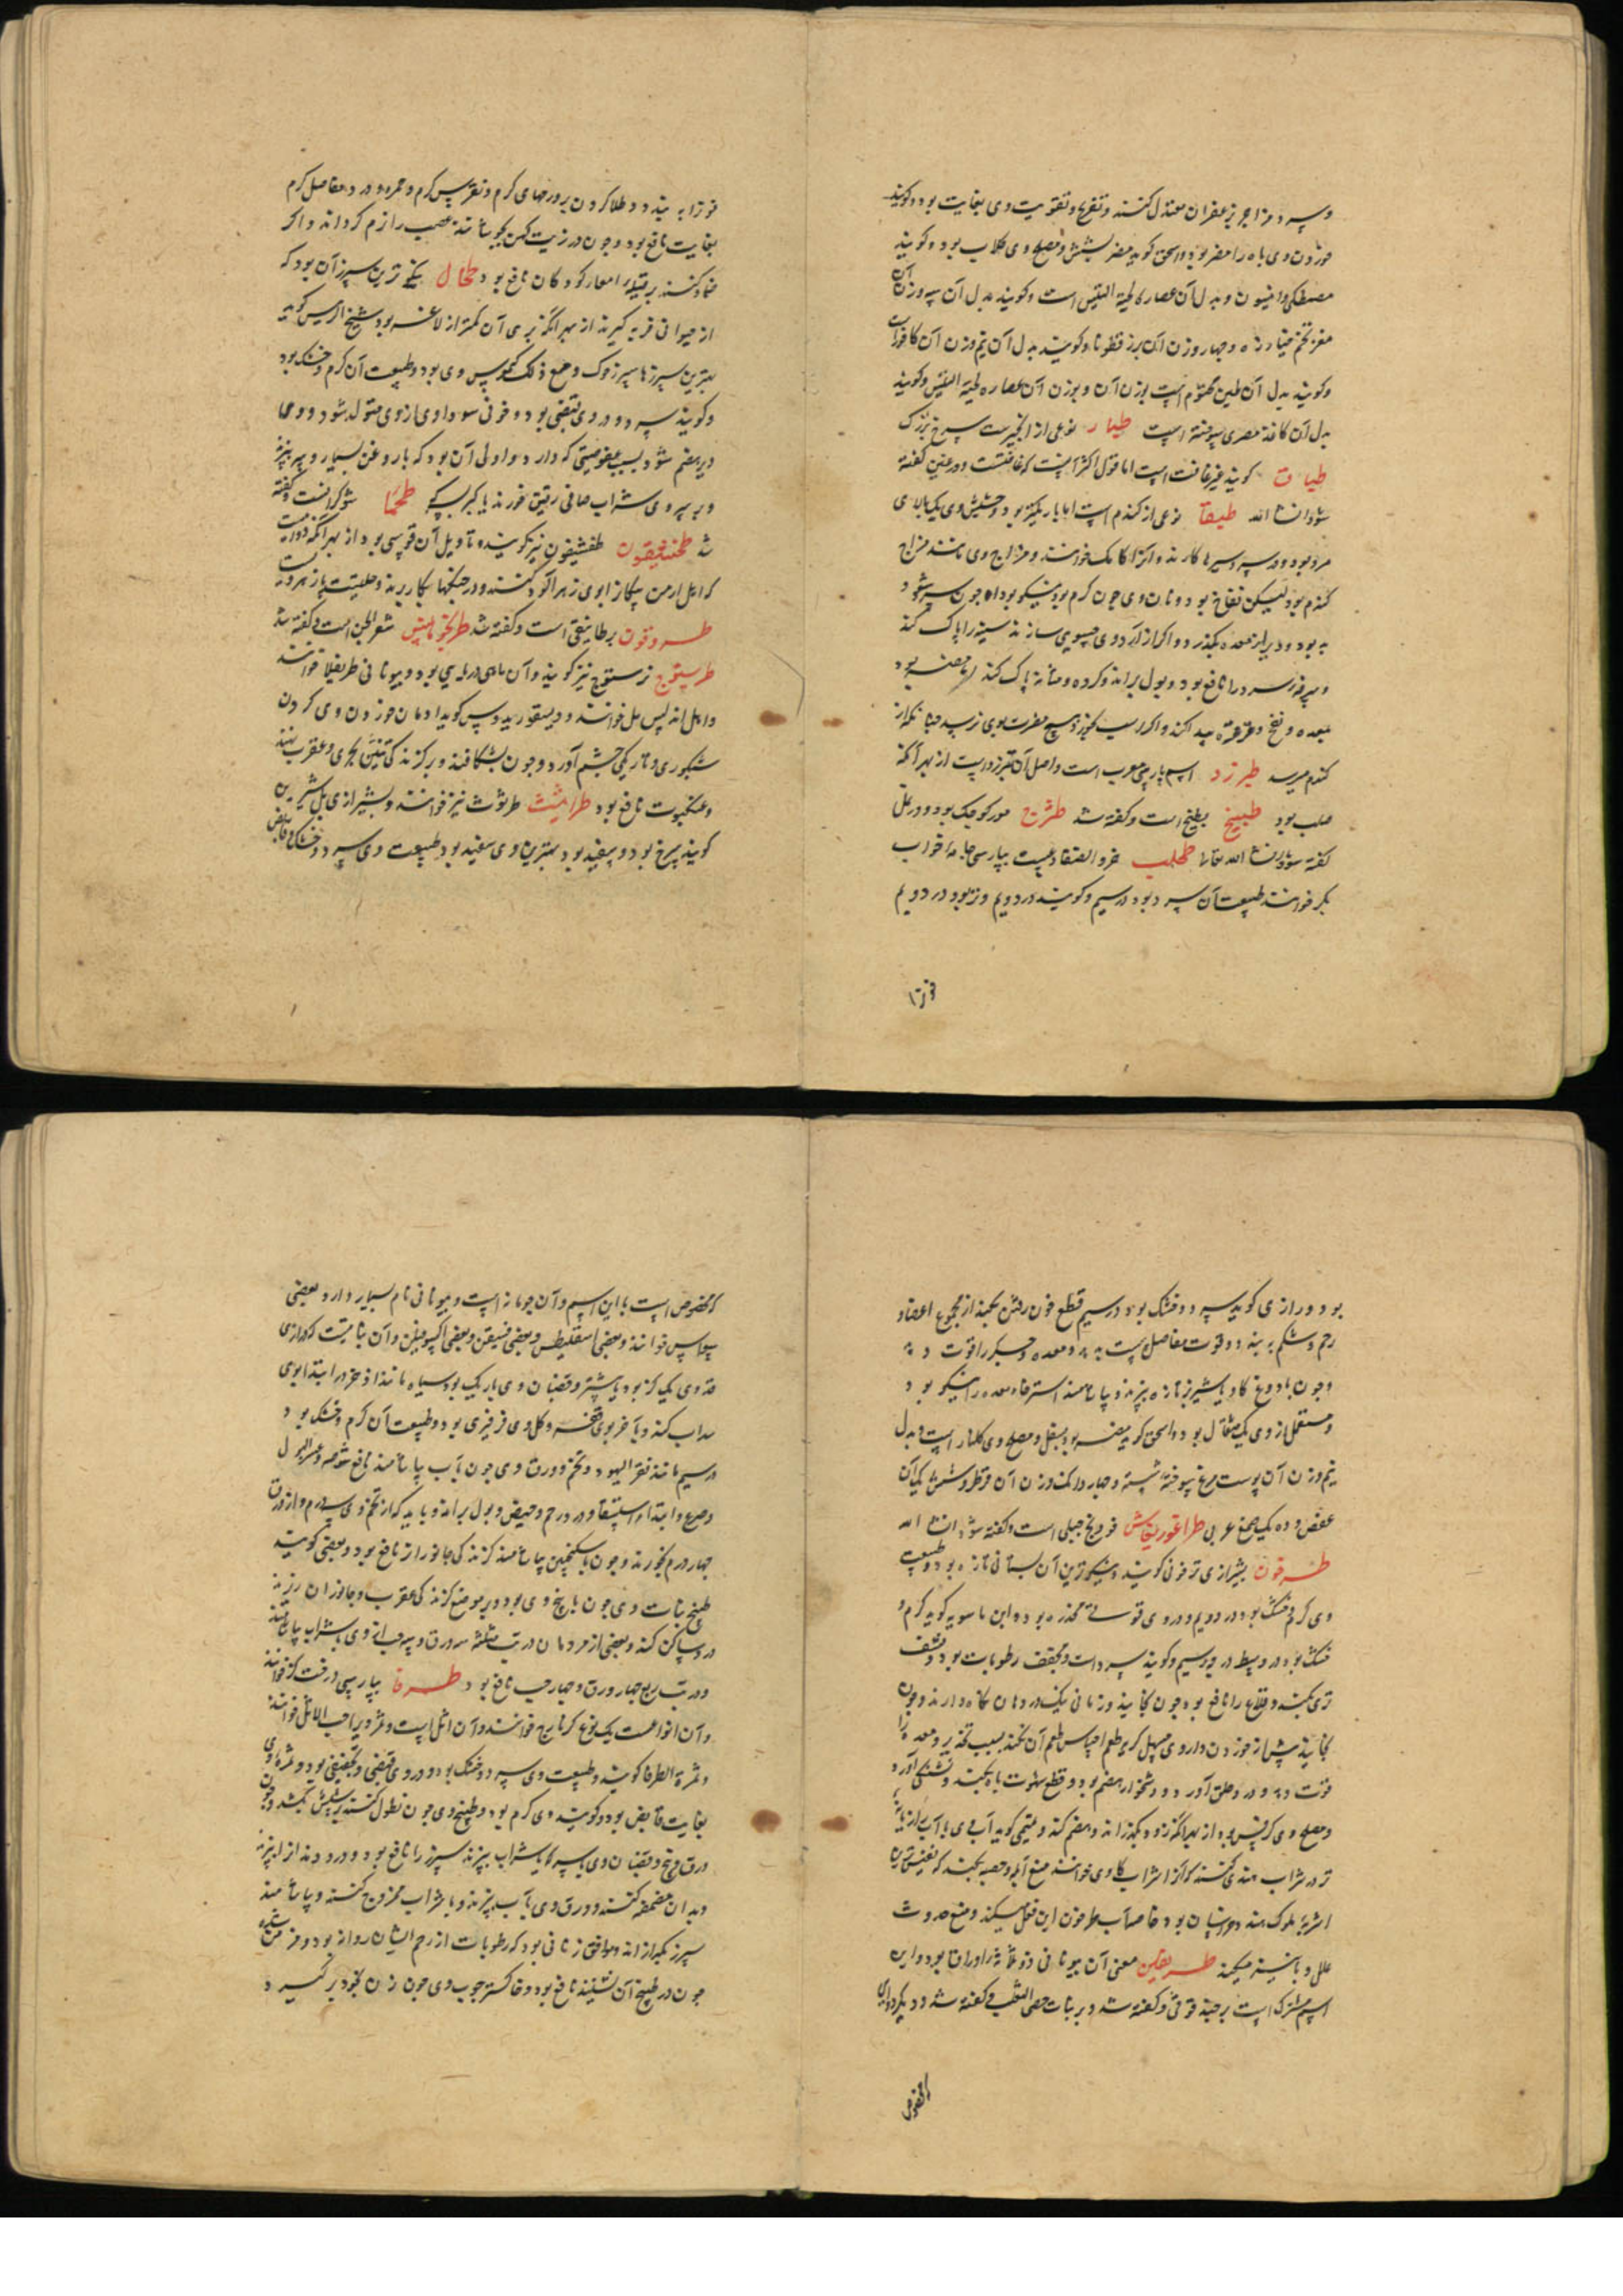 و سرد مزاجرا بزعفران معتدل کنند و تفریح و تقویت وی بغایت بود و گویند
خوردن وی باه را مضر بود و اسحق گوید مضر بشش و مصلح وی گلاب بود و گویند
مصطکی و انیسون و بدل آن عصاره لحیة التیس است و گویند بدل آن سه وزن آن
مغز تخم خیار وزه و چهار وزن آن بزرقطونا و گویند بدل آن نیم وزن آن کافور است
و گویند بدل آن طین مختوم است بوزن آن و بوزن آن عصاره لحیة التیس و گویند
بدل آن کاغذ مصری سوخته است طبار نوعی از انجیرست سرخ بزرگ
طباق گویند غیر غافت است اما قول اکثر آنست که غافتست و در غین گفته
شود انشا الله طیفا نوعی از گندم است اما باریکتر بود و حشیش وی یک بالای
مرد بود و در سردسیرها کارند و آنرا کاکمک خوانند و مزاج وی مانند مزاج
گندم بود لیکن نفاخ بود و نان وی چون گرم بود نیکو بود اما چون سرد شود
بد بود و دیر از معده بگذرد و اگر از آرد وی حسوی سازند سینه را پاک کند
و سرفه سرد را نافع بود و بول براند و گرده و مثانه پاک کند اما مضر بود
بمعده و نفخ و قرقره پیدا کند و اگر اسب بخورد هیچ مضرت بوی نرسد چنانکه از
گندم میرسد طبرزد اسم پارسی معرب است و اصل آن تبرزد است از بهر آنکه
صلب بود طبیخ بطیخ است و گفته شد طثرج مور کوچک بود و در نمل
گفته شود انشا الله تعالی طحلب خرو الضفادعست بپارسی جامه غواب
بکر خوانند طبیعت آن سرد بود در سیم و گویند در دویم و تر بود در دویم
خون را
خون را به بندد و طلا کردن بر ورمهای گرم و نقرس گرم و حمره و درد مفاصل گرم
بغایت نافع بود و چون در زیت کهن بجوشانند عصب را نرم گرداند و اگر
ضماد کنند بر قیله امعا کودکان نافع بود طحال نیکوترین سپرز آن بود که
از حیوانی فربه گیرند از بهر آنکه بدی آن کمتر از لاغر بود شیخ الرئیس گوید
بهترین سپرزها سپرز خوک و مع ذلک کیموس وی بد بود و طبیعت آن گرم و خشک بود
و گویند سرد و در وی قبضی بود و خونی سوداوی از وی متولد شود و وی
دیر هضم شود بسبب عفوصتی که دارد و اولی آن بود که با روغن بسیار و پیه بپزند
و بر سر وی شراب صافی رقیق خورند یا کبر بسرکه طحما شوکرانست و گفته
شد طخشیقون طفشیقون نیز گویند و تاویل آن قوسی بود از بهر آنکه دوایست
که اهل ارمن پیکان را بوی زهرآلود کنند و در جنگها بکار برند و حلتیت پادزهر ویست
طرونون برطانیقی است و گفته شد طرنخومانیس شعر الجن است و گفته شد
طرستوج ترستوج نیز گویند و آن ماهی دریایی بود و بیونانی طریغلا خوانند
و اهل اندلس مل خوانند و دیسقوریدوس گوید ادمان خوردن وی کردن
شبکوری و تاریکی چشم آورد و چون بشکافند و بر گزندگی تنین بحری و عقرب نهند
و عنکبوت نافع بود طراثیث طرثوث نیز خوانند و بشیرازی بل شیرین
گویند سرخ بود و سفید بود بهترین وی سفید بود طبیعت وی سرد و خشک و قابض
بود و رازی گوید سرد و خشک بود در سیم قطع خون رفتن بکند از مجموع اعضا و
رحم و شکم ببندد و قوت مفاصل سست بدهد و معده و جگر را قوت دهد
و چون با دوغ گاو یا شیر بز تازه بپزند و بیاشامند استرخاء معده را نیکو بود
و مستعمل از وی یک مثقال بود و اسحق گوید مضر بود بسفل و مصلح وی گلنار است و بدل
نیم وزن آن پوست مرغ سوخته شسته و چهار دانگ وزن آن قرظ و شش یک آن
عفص و ده یک صمغ عربی طراغوریغانس فودنج جبلی است و گفته شود انشا الله
طرخون بشیرازی ترخونی گویند و نیکوترین آن بستانی تازه بود و طبیعت
وی گرم و خشک بود در دویم و در وی قوت مخدره بود و ابن ماسویه گوید گرم و
خشک بود در وسط درجه سیم و گویند سرد است و مجفف رطوبات بود و منشف
تری بکند و قلاع را نافع بود چون بخایند و زمانی نیک در دهان نگاه دارند و چون
بخایند پیش از خوردن داروی مسهل کریه طعم احساس طعم آن نکند بسبب تخدیر و معده را
قوت دهد و درد حلق آورد و دشخوار هضم بود و قطع شهوت باه بکند و تشنگی آورد
و مصلح وی کرفس بود از بهر آنکه زود بگذراند و هضم کند و تمیمی گوید آب وی با آب رازیانه
تر در شراب هندی کنند که آنرا شراب کادی خوانند منع آبله و حصبه بکند که نفیس ترین
اشربه ملوک هند و خراسان بود و خاصه آب طرخون این فعل میکند و منع حدوث
علل وبائیه میکند طریفلن معنی آن بیونانی ذو ثلثة اوراق بود و این
اسم مشترک است بر حندقوقی و گفته شد و بر نبات خصی الثعلب و گفته شد و دیگر دوایی
مخصوص
که مخصوص است باین اسم و آن حومانه است و بیونانی نام بسیار دارد بعضی
خوانند و بعضی اسفلیطس و بعضی و بعضی اکسوفلن و آن نباتیست که درازی
قد وی یک گز بود یا بیشتر و قضبان وی باریک بود سیاه مانند اذخر و در ابتدا بوی
سداب کند و بآخر بوی قفر و گل وی فرفیری بود و طبیعت آن گرم و خشک بود
در سیم مانند قفر الیهود و تخم و ورق وی چون بآب بیاشامند نافع شوصه و عسر البول
و صرع و ابتداء استسقا و درد رحم و حیض و بول براند و باید که از تخم وی سه درم و از ورق
چهار درم بخورند و چون با سکنجبین بیاشامند گزندگی جانوران نافع بود و بعضی گویند
طبیخ نبات وی چون با بیخ وی بود و بر موضع گزندگی عقرب و جانوران ریزند
درد ساکن کند و بعضی از مردمان در تب مثلثه سه ورق و سه حب از وی با شراب بیاشامند
و در تب ربع چهار ورق و چهار حب نافع بود طرفا بپارسی درخت گز خوانند
و آن انواعست یک نوع گزمازج خوانند و آن اثل است و ثمر ویرا حب الاثل خوانند
و ثمرة الطرفا گویند و طبیعت وی سرد و خشک بود و در وی قبضی و تجفیفی بود و ثمره وی
بغایت قابض بود و گویند وی گرم بود و طبیخ وی چون نطول کنند بر سر شپش بکشد و چون
ورق و بیخ و قضبان وی با سرکه یا شراب بپزند سپرز را نافع بود و درد دندان را بپزند
و بدان مضمضه کنند و ورق وی بآب بپزند و با شراب ممزوج کنند و بیاشامند
سپرز بگدازاند و موافق زنانی بود که رطوبات از رحم ایشان روانه بود و مزمن شده
چون در طبیخ آن نشینند نافع بود و خاکستر چوب وی چون زن بخود برگیرد